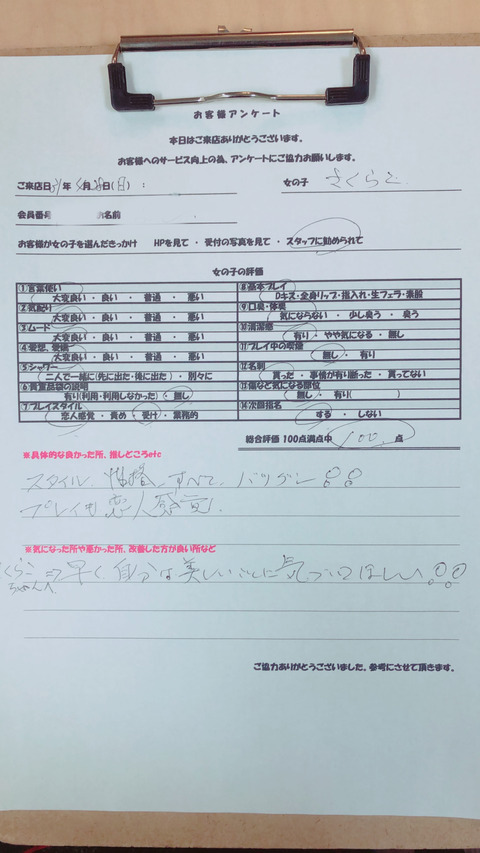 お客様アンケート
本日はご来店ありがとうございます。
お客様へのサービス向上の為、アンケートにご協力お願いします。
ご来店日 年 月 日(日) : 女の子 さくらこ
会員番号 名前
お客様が女の子を選んだきっかけ HPを見て ・ 受付の写真を見て ・ スタッフに勧められて
女の子の評価
①言葉使い
大変良い ・ 良い ・ 普通 ・ 悪い
2.気配り
大変良い ・ 良い ・ 普通 ・ 悪い
3.ムード
大変良い ・ 良い ・ 普通 ・ 悪い
4.愛想、愛嬌
大変良い ・ 良い ・ 普通 ・ 悪い
5.シャワー
二人で一緒に(先に出た・後に出た) ・ 別々に
6.貴重品袋の説明
有り(利用・利用しなかった) ・ 無し
7.プレイスタイル
恋人感覚 ・ 責め ・ 受け ・ 業務的
8.基本プレイ
Dキス・全身リップ・指入れ・生フェラ・素股
9.口臭・体臭
気にならない ・ 少し臭う ・ 臭う
10.清潔感
有り ・ やや気になる ・ 無し
11.プレイ中の喫煙
無し ・ 有り
12.名刺
貰った ・ 事情が有り断った ・ 貰ってない
13.傷など気になる部位
無し ・ 有り( )
14.次回指名
する ・ しない
総合評価 100点満点中 100 点
※具体的な良かった所、推しどころetc
スタイル、性格、すべて、バツグン!!
プレイも恋人感覚!
※気になった所や悪かった所、改善した方が良い所など
さくらこちゃんへ ⇒ 早く、自分は美しいことに気づいてほしい!!!
ご協力ありがとうございました。参考にさせて頂きます。